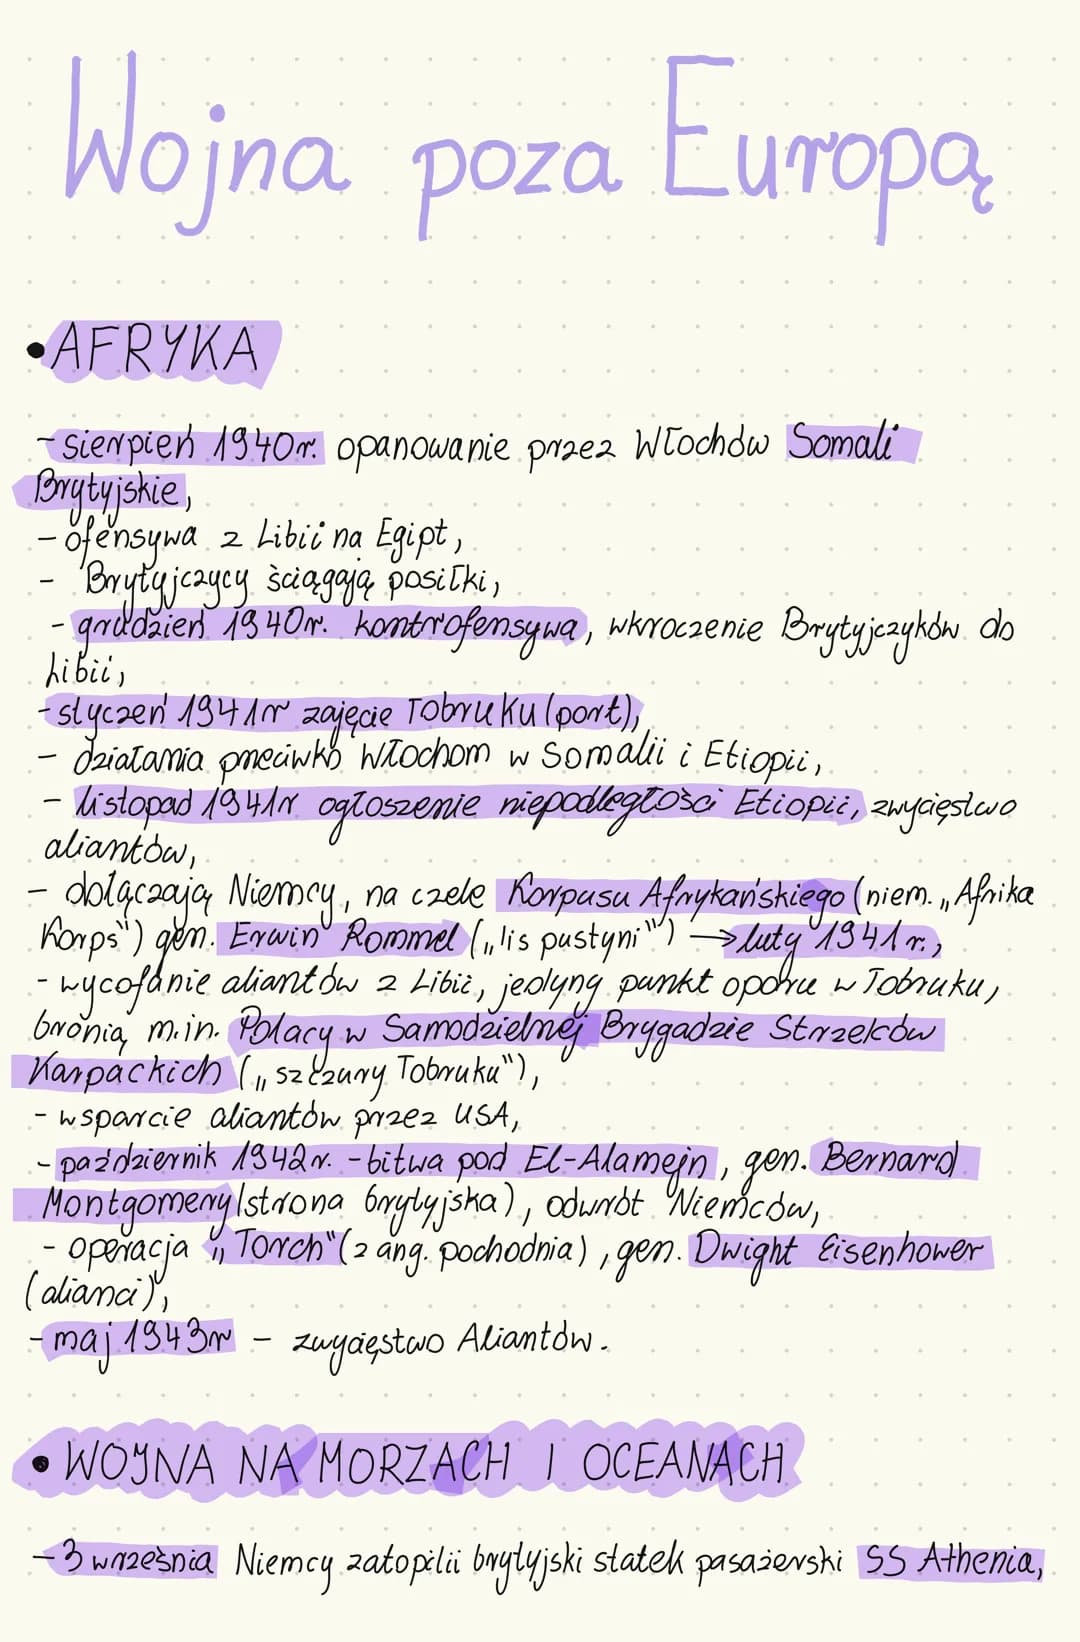 Wojna poza Europą
• AFRYKA
- sierpień 1940r. opanowanie przez Włochów Somali
Brytyjskie,
- ofensywa z Libii na Egipt,
- Brytyjczycy ściągają posiłki,
- grudzień 1940r. kontrofensywa, wkroczenie Brytyjczyków do
Libii,
- styczeń 1941r zajęcie Tobruku (port),
- działania przeciwko Włochom w Somalii i Etiopii,
- listopad 1941r ogłoszenie niepodległości Etiopii, zwycięstwo
aliantów,
- dołączają Niemcy, na czele Korpusu Afrykańskiego (niem. „Afrika
Korps") gen. Erwin Rommel („lis pustyni") → luty 1941r.,
- wycofanie aliantów z Libii, jedyny punkt oporu w Tobruku,
bronią m.in. Polacy w Samodzielnej Brygadzie Strzelców
Karpackich („szczury Tobruku"),
- wsparcie aliantów przez USA,
- październik 1942r. - bitwa pod El-Alamejn, gen. Bernard
Montgomery (strona brytyjska), odwrót Niemców,
- operacja „Torch" (z ang. pochodnia), gen. Dwight Eisenhower
(alianci),
- maj 1943r - zwycięstwo Aliantów.
• WOJNA NA MORZACH I OCEANACH
- 3 września Niemcy zatopilii brytyjski statek pasażerski SS Athenia,